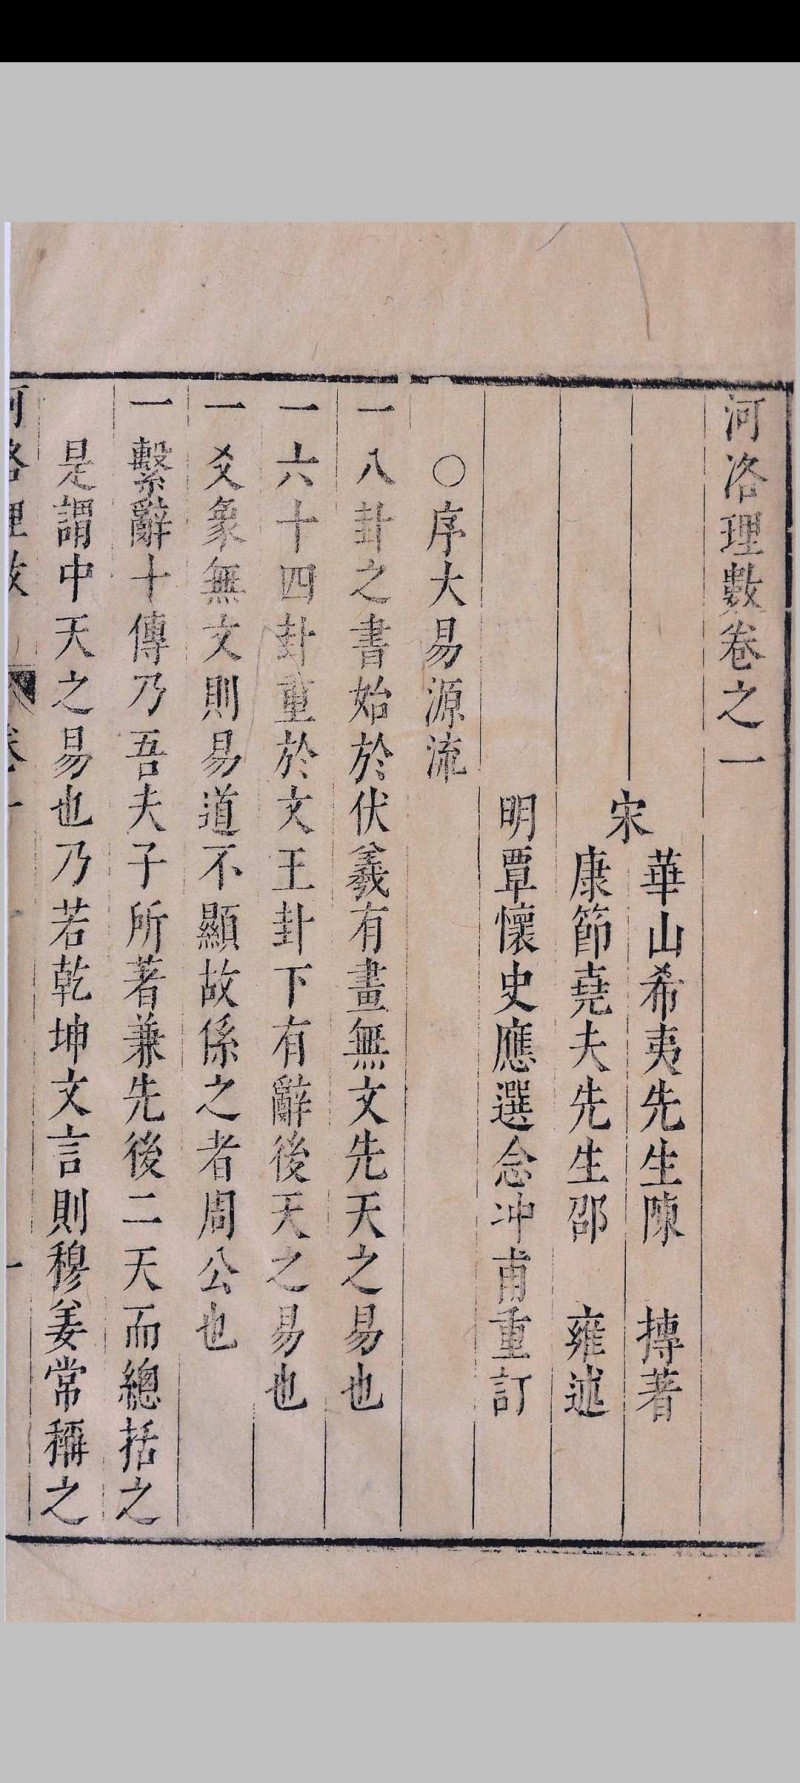 河洛理數卷之一
宋
華山希夷先生陳　摶著
康節堯夫先生邵　雍述
明覃懷史應選念冲甫重訂
○序大易源流
一八卦之書始於伏羲有畫無文先天之易也
一六十四卦重於文王卦下有辭後天之易也
一爻象無文則易道不顯故係之者周公也
一繫辭十傳乃吾夫子所著兼先後二天而總括之
是謂中天之易也乃若乾坤文言則穆姜常稱之
河洛理數　卷一　一